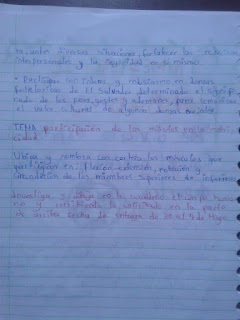 diversas situaciones, fortalecer las relaciones
interpersonales y la seguridad en si mismo.
• Participa con interés y entusiasmo en danzas
folklóricas de El Salvador determinado el signifi
cado de los pasos, gestos y ademanes, para
el valor cultural de algunas danzas
TEMA participación de los músculos en la motri
cidad
Ubica y nombra con carteles los músculos que
participan en flexión-extensión, rotación y
circunducción de los miembros superiores de inferiores
dibuja en tu cuaderno el cuerpo huma
no y
de arriba fecha de entrega de 30 al 4 de Mayo